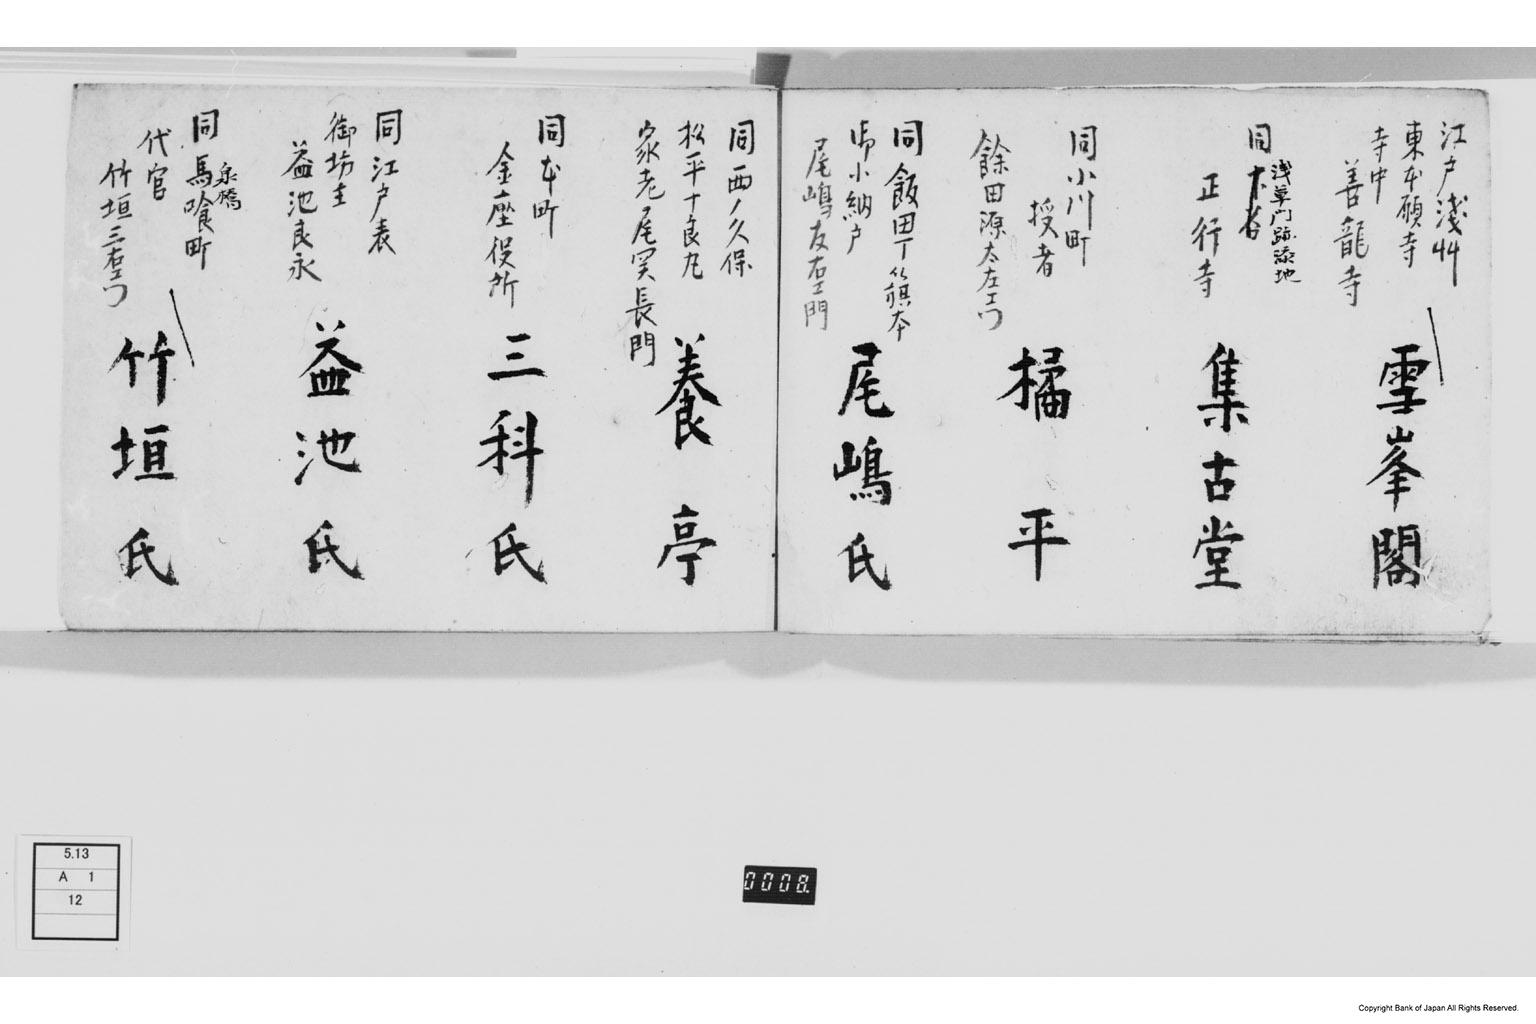 江戸淺艸
東本願寺
寺中
善龍寺
雪峯閣
同下谷
浅草門跡添地
正行寺
集古堂
同小川町
授者
餘田源太左エ門
橘平
同飯田丁旗本
御小納戸
尾嶋友右エ門
尾嶋氏
同西ノ久保
松平十良丸
家老尾関長門
養亭
同本町
金座役所
三科氏
同江戸表
御坊主
益池良永
益池氏
同馬喰町
代官
竹垣三右エ門
竹垣氏
5.13
A 1
12
0008.
Copyright Bank of Japan All Rights Reserved.